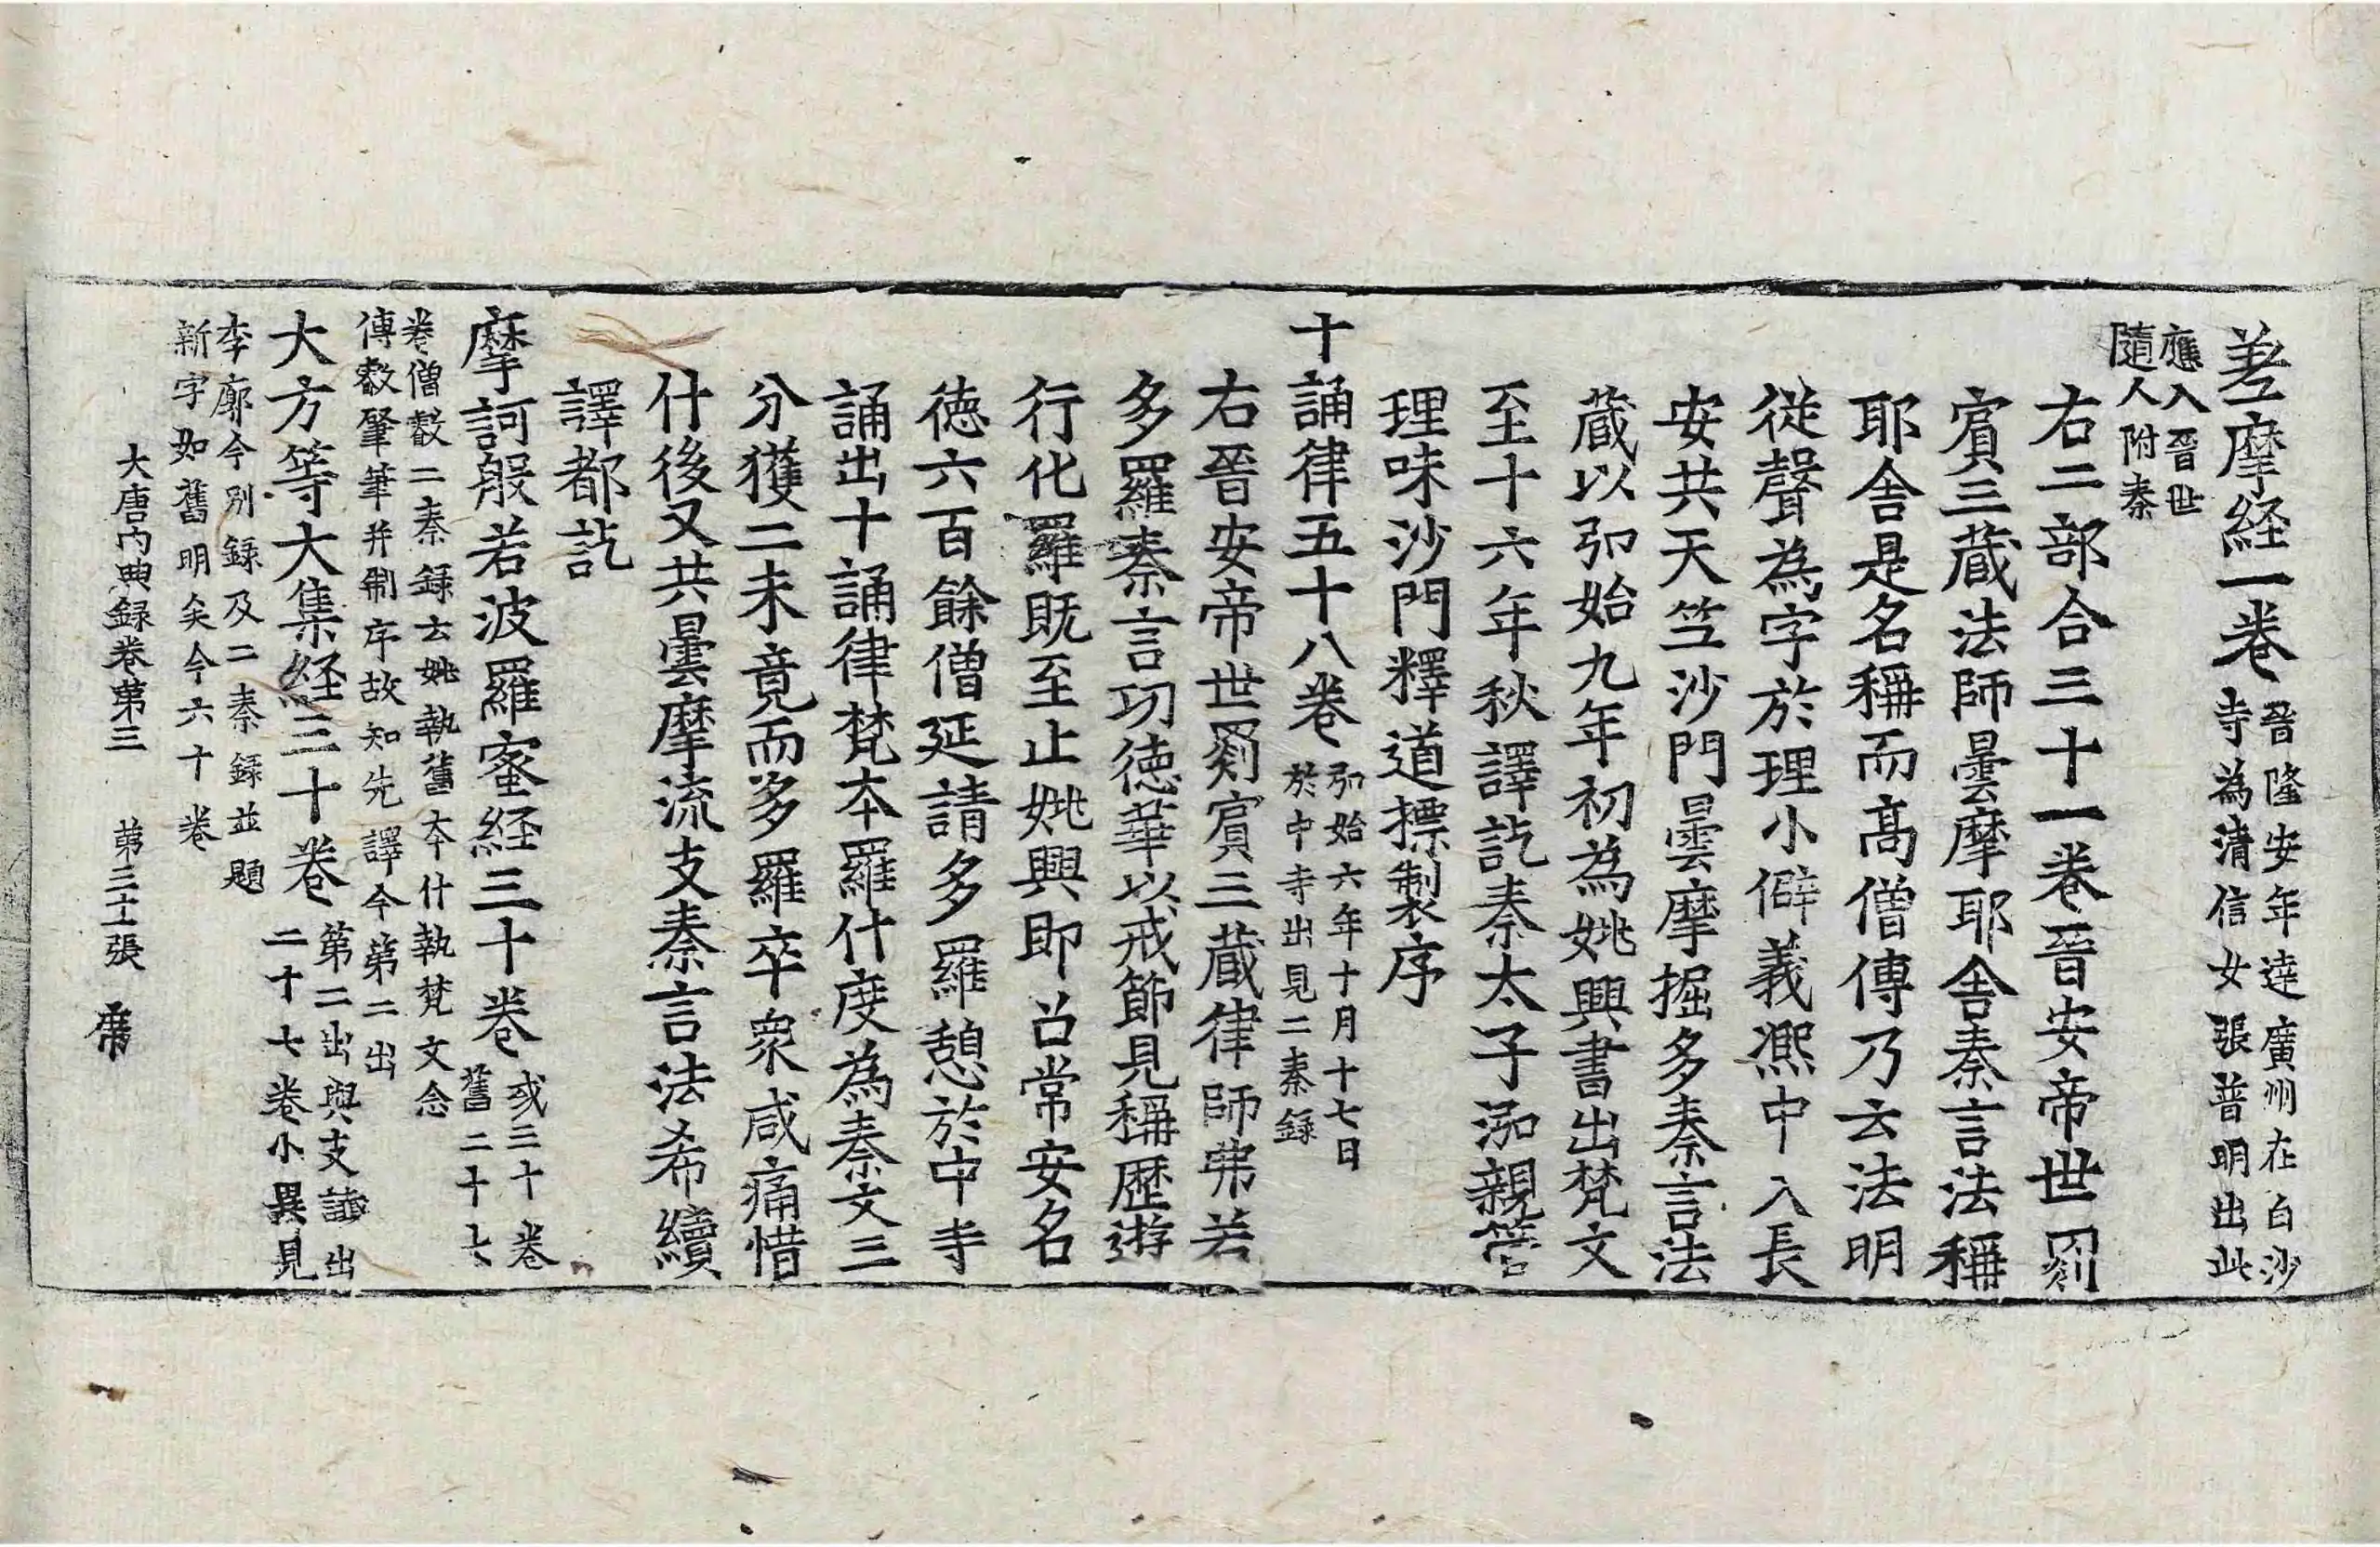 差摩経一卷 晉隆安年達廣州在白沙
寺為清信女張普明出此
應入晉世
隨人附秦
右二部合三十一卷晉安帝世罽
賔三蔵法師曇摩耶舎秦言法稱
耶舎是名稱而髙僧傳乃云法明
從聲為字於理小僻義熈中入長
安共天竺沙門曇摩掘多秦言法
蔵以弘始九年初為姚興書出梵文
至十六年秋譯訖秦太子泓親管
理味沙門釋道摽製序
十誦律五十八卷 弘始六年十月十七日
於中寺出見二秦録
右晉安帝世罽賔三蔵律師弗若
多羅秦言功徳華以戒節見稱歷遊
行化羅既至止姚興即召常安名
徳六百餘僧延請多羅憩於中寺
誦出十誦律梵夲羅什度為秦文三
分獲二未竟而多羅卒衆咸痛惜
什後又共曇摩流支秦言法希續
譯都訖
摩訶般若波羅蜜経三十卷 或三十卷
舊二十七
卷僧叡二秦録云姚執舊夲什執梵文念
傳叡肇筆并制序故知先譯今第二出
大方等大集経三十卷 第二出與支謶出
二十七卷小異見
李廓今別録及二秦録並題
新字如舊明矣今六十卷
大唐内典録卷第三 第三十張 席